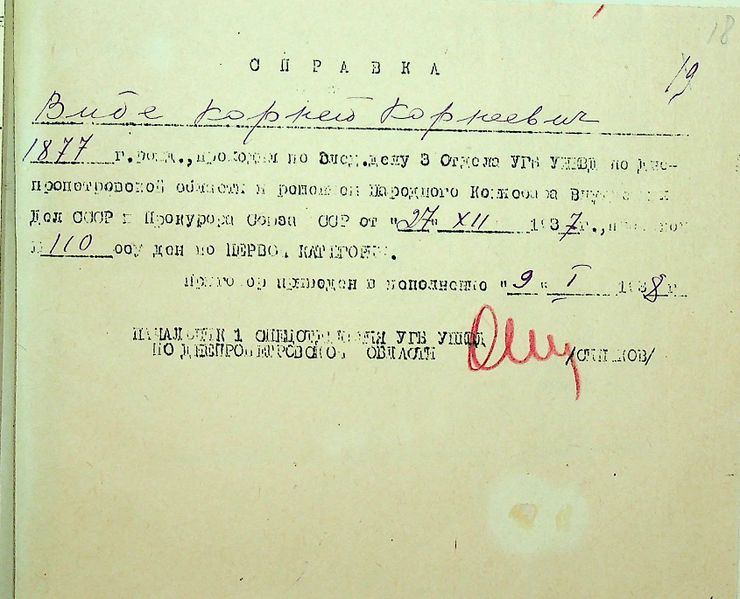 18
19
СПРАВКА
Вибе Корней Корнеевич
1877 г.рожд., проходил по след.делу 3 Отдела УГБ УНКВД по Дне-
пропетровской области и Народного Комиссара Внутренних
Дел СССР и Прокурора Союза ССР от "27" XII 1937г.,
110 осужден по ПЕРВОЙ КАТЕГОРИИ.
Приговор приведен в исполнение "9" I 1938 г.
НАЧАЛЬНИК 1 СПЕЦОТДЕЛЕНИЯ УГБ УНКВД
ПО ДНЕПРОПЕТРОВСКОЙ ОБЛАСТИ